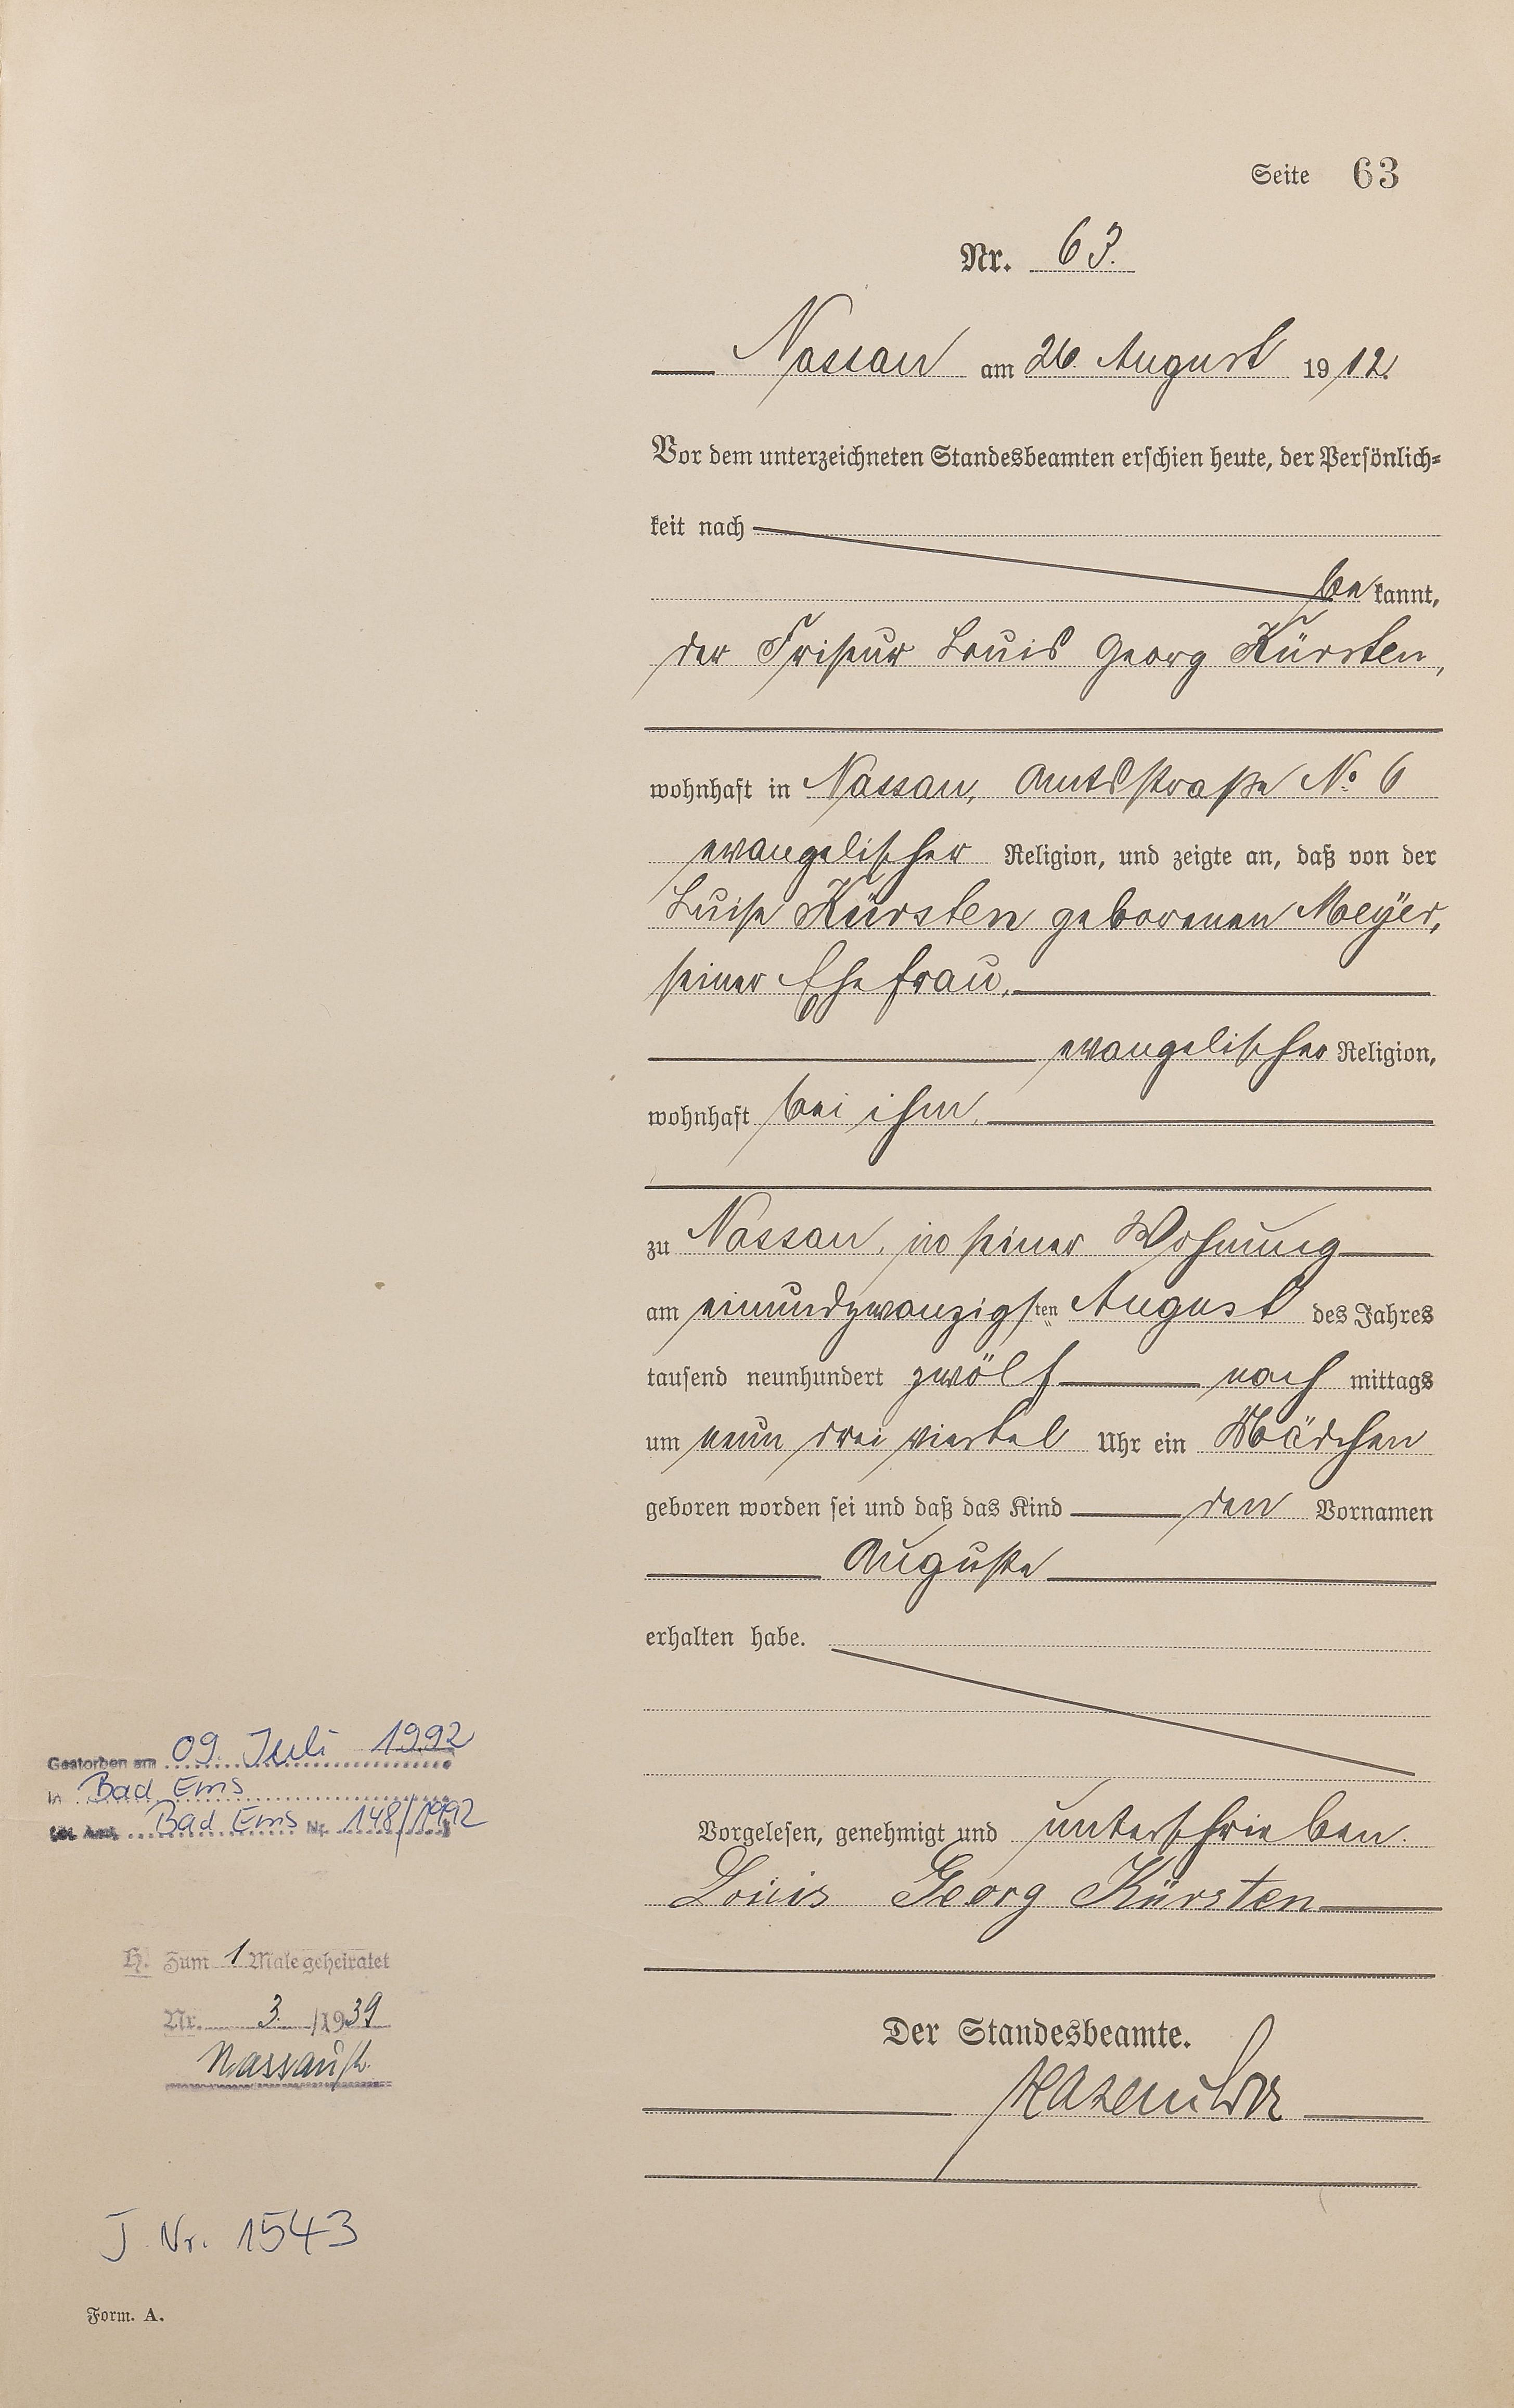 Seite 63
Nr. 63.
Nassau am 26. August 1912.
Vor dem unterzeichneten Standesbeamten erschien heute, der Persönlich=
keit nach
be kannt,
der Friseur Louis Georg Kürsten,
wohnhaft in Nassau, Amtsstraße No 6
evangelischer Religion, und zeigte an, daß von der
Luise Kürsten geborenen Meyer,
seiner Ehefrau,
evangelischer Religion,
wohnhaft bei ihm,
zu Nassau, in seiner Wohnung
am einundzwanzigsten August des Jahres
tausend neunhundert zwölf nach mittags
um neun drei viertel Uhr ein Mädchen
geboren worden sei und daß das Kind den Vornamen
Auguste
erhalten habe.
Vorgelesen, genehmigt und unterschrieben.
Louis Georg Kürsten
Der Standesbeamte.
Gestorben am 09. Juli 1992
in Bad Ems
Bad Ems Nr. 148/1992
H. Zum 1 Male geheiratet
Nr. 3. /1939
Nassau/L.
J. Nr. 1543
Form. A.